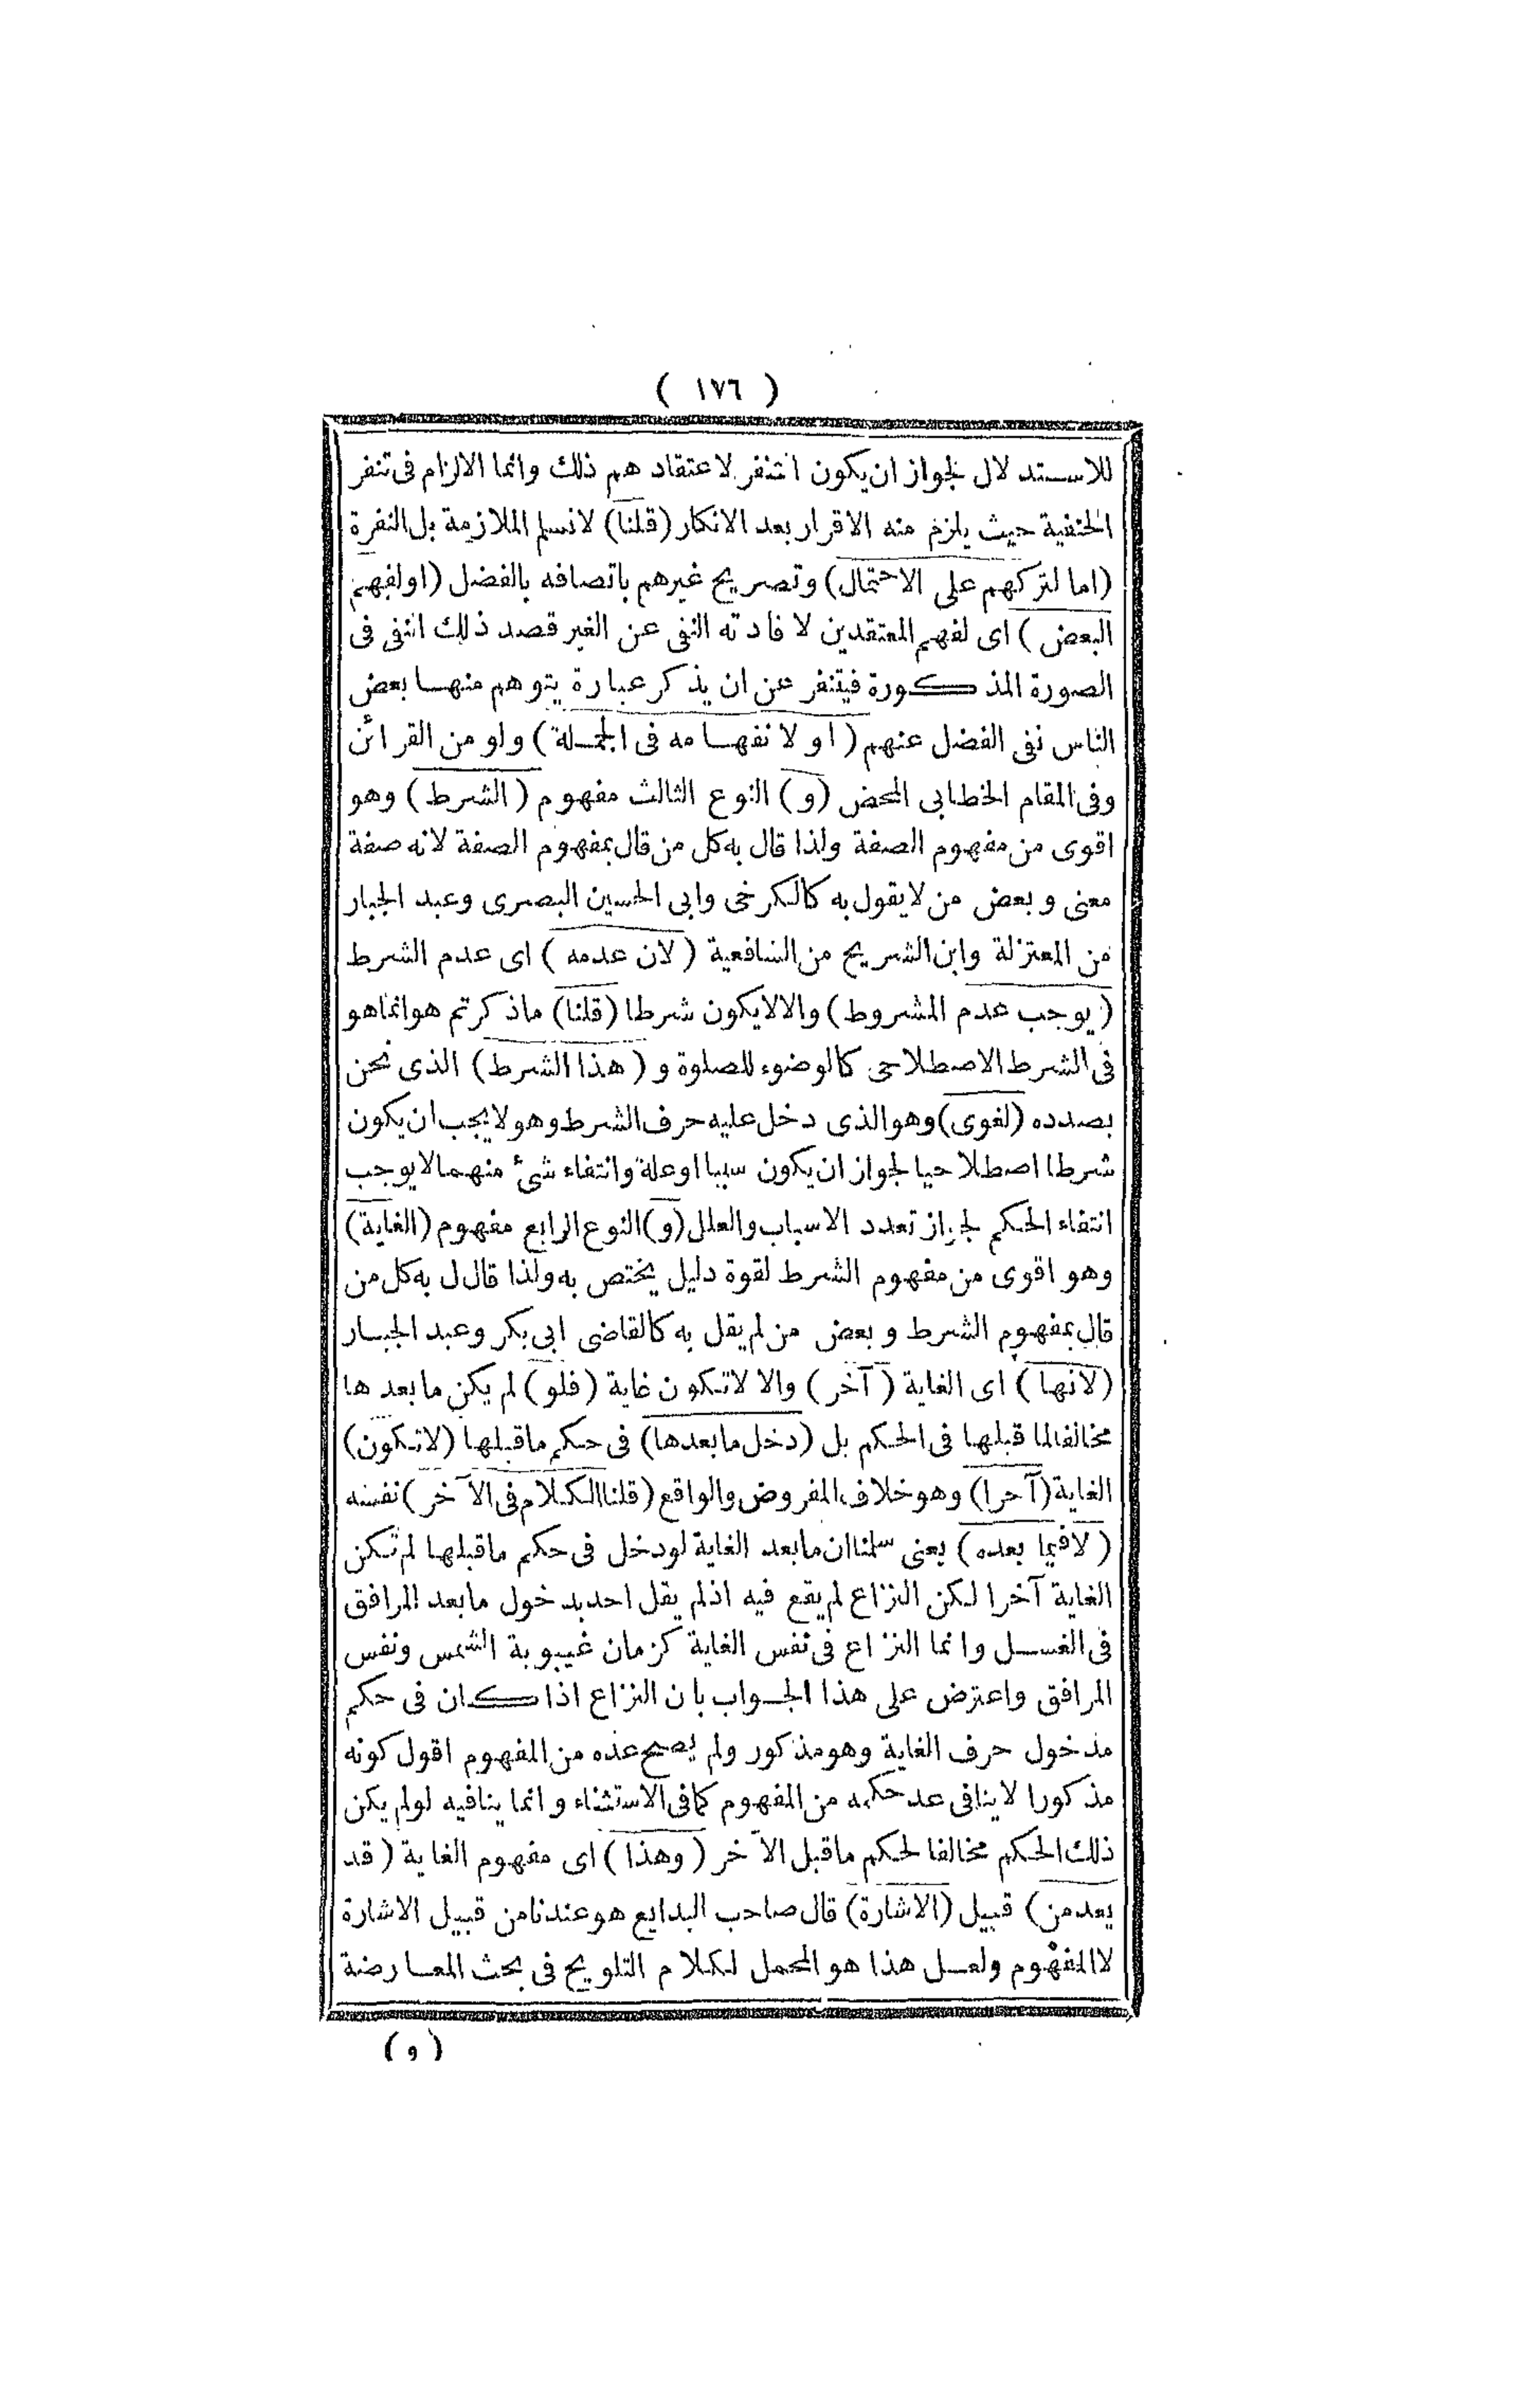 ( ١٧٦ )
للاستدلال لجواز ان يكون التنفر لاعتقادهم ذلك وانما الالزام فى تنفر
الحنفية حيث يلزم منه الاقرار بعد الانكار (قلنا) لانسلم الملازمة بل النفرة
(اما لتركهم على الاحتمال) وتصريح غيرهم باتصافه بالفضل (اولفهم
البعض) اى لفهم المعتقدين لافادته النفى عن الغير قصد ذلك النفى فى
الصورة المذكورة فيتنفر عن ان يذكر عبارة يتوهم منها بعض
الناس نفى الفضل عنهم (او لانفهامه فى الجملة) ولو من القرائن
وفى المقام الخطابى المحض (و) النوع الثالث مفهوم (الشرط) وهو
اقوى من مفهوم الصفة ولذا قال به كل من قال بمفهوم الصفة لانه صفة
معنى وبعض من لايقول به كالكرخى وابى الحسين البصرى وعبد الجبار
من المعتزلة وابن الشريح من الشافعية (لان عدمه) اى عدم الشرط
(يوجب عدم المشروط) والالايكون شرطا (قلنا) ماذكرتم هوانماهو
فى الشرط الاصطلاحى كالوضوء للصلوة و (هذا الشرط) الذى نحن
بصدده (لغوى) وهوالذى دخل عليه حرف الشرط وهو لايجب ان يكون
شرطا اصطلاحيا لجواز ان يكون سببا اوعلة وانتفاء شئ منهما لايوجب
انتفاء الحكم لجواز تعدد الاسباب والعلل (و) النوع الرابع مفهوم (الغاية)
وهو اقوى من مفهوم الشرط لقوة دليل يختص به ولذا قال ل به كل من
قال بمفهوم الشرط وبعض من لم يقل به كالقاضى ابى بكر وعبد الجبار
(لانها) اى الغاية (آخر) والا لاتكون غاية (فلو) لم يكن مابعدها
مخالفالما قبلها فى الحكم بل (دخل مابعدها) فى حكم ماقبلها (لاتكون)
الغاية (آحرا) وهوخلاف المفروض والواقع (قلنا الكلام فى الآخر) نفسه
(لافيما بعده) يعنى سلنا ان مابعد الغاية لودخل فى حكم ماقبلها لم تكن
الغاية آخرا لكن النزاع لم يقع فيه اذلم يقل احد بدخول مابعد المرافق
فى الغسل وانما النزاع فى نفس الغاية كزمان غيبوبة الشمس ونفس
المرافق واعترض على هذا الجواب بان النزاع اذا كان فى حكم
مدخول حرف الغاية وهو مذكور ولم يصح عده من المفهوم اقول كونه
مذكورا لاينافى عد حكمه من المفهوم كما فى الاستثناء وانما ينافيه لولم يكن
ذلك الحكم مخالفا لحكم ماقبل الآخر (وهذا) اى مفهوم الغاية (قد
يعدمن) قبيل (الاشارة) قال صاحب البدايع هو عندنا من قبيل الاشارة
لاالمفهوم ولعل هذا هو المحمل لكلام التلويح فى بحث المعارضة
(و)